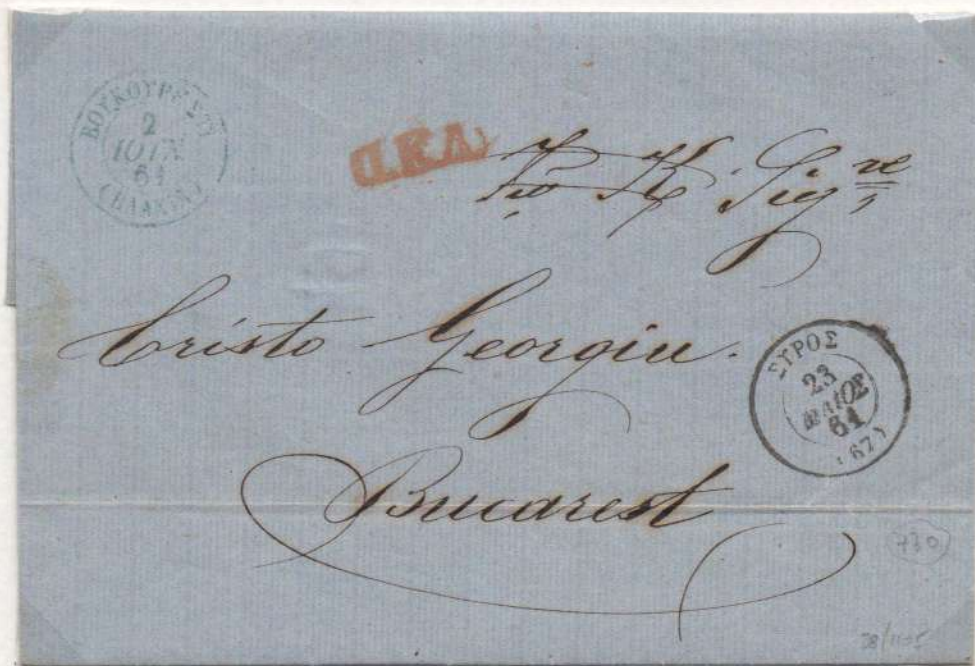 ΒΟΥΚΟΥΡΕΣΤΙ
2
ΙΟΥΝ
61
(ΒΛΑΧΙΑ)
Sig.re
Cristo Georgiu.
ΣΥΡΟΣ
23
ΜΑΙΟΣ
61
(67)
Bucarest
730